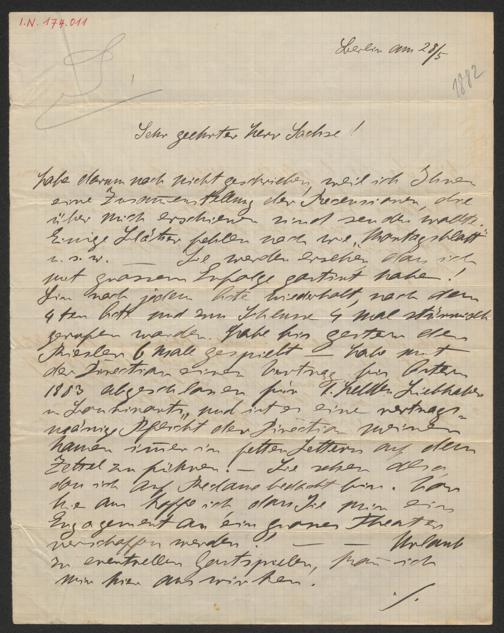 I.N. 174.011
Berlin am 28/5
1882
Sehr geehrter Herr Sachse!
habe darum noch nicht geschrieben, weil ich Ihnen
eine Zusammenstellung der Recensionen, die
über mich erschienen sind senden wollte.
Einige Blätter fehlen noch wie „Montagsblatt"
u. s. w. — Sie werden ersehen dass ich
mit grossem Erfolge gastirt habe!
Bin nach jedem Akte wiederholt, nach dem
4ten Akt und zum Schlusse 4 mal stürmisch
gerufen worden. Habe bis gestern den
6 Male gespielt — habe mit
der Direction einen Vertrag bis Ostern
1883 abgeschlossen für I. Helden Liebhaber
u und ist es eine vertrags-
mässige Pflicht der Direction meinen
Namen immer in fetten Lettern auf dem
Zettel zu führen. — Sie sehen also
dass ich auf Reclame bedacht bin. Von
hie aus hoffe ich dass Sie mir ein
Engagement an ein grosses Theater
verschaffen werden! — — Urlaub
zu eventuellen Gastspielen, kann ich
mir hier auswirken.